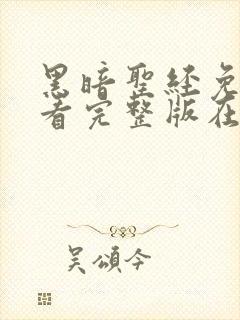 黑暗聖經免
看完整版在
吳頌今